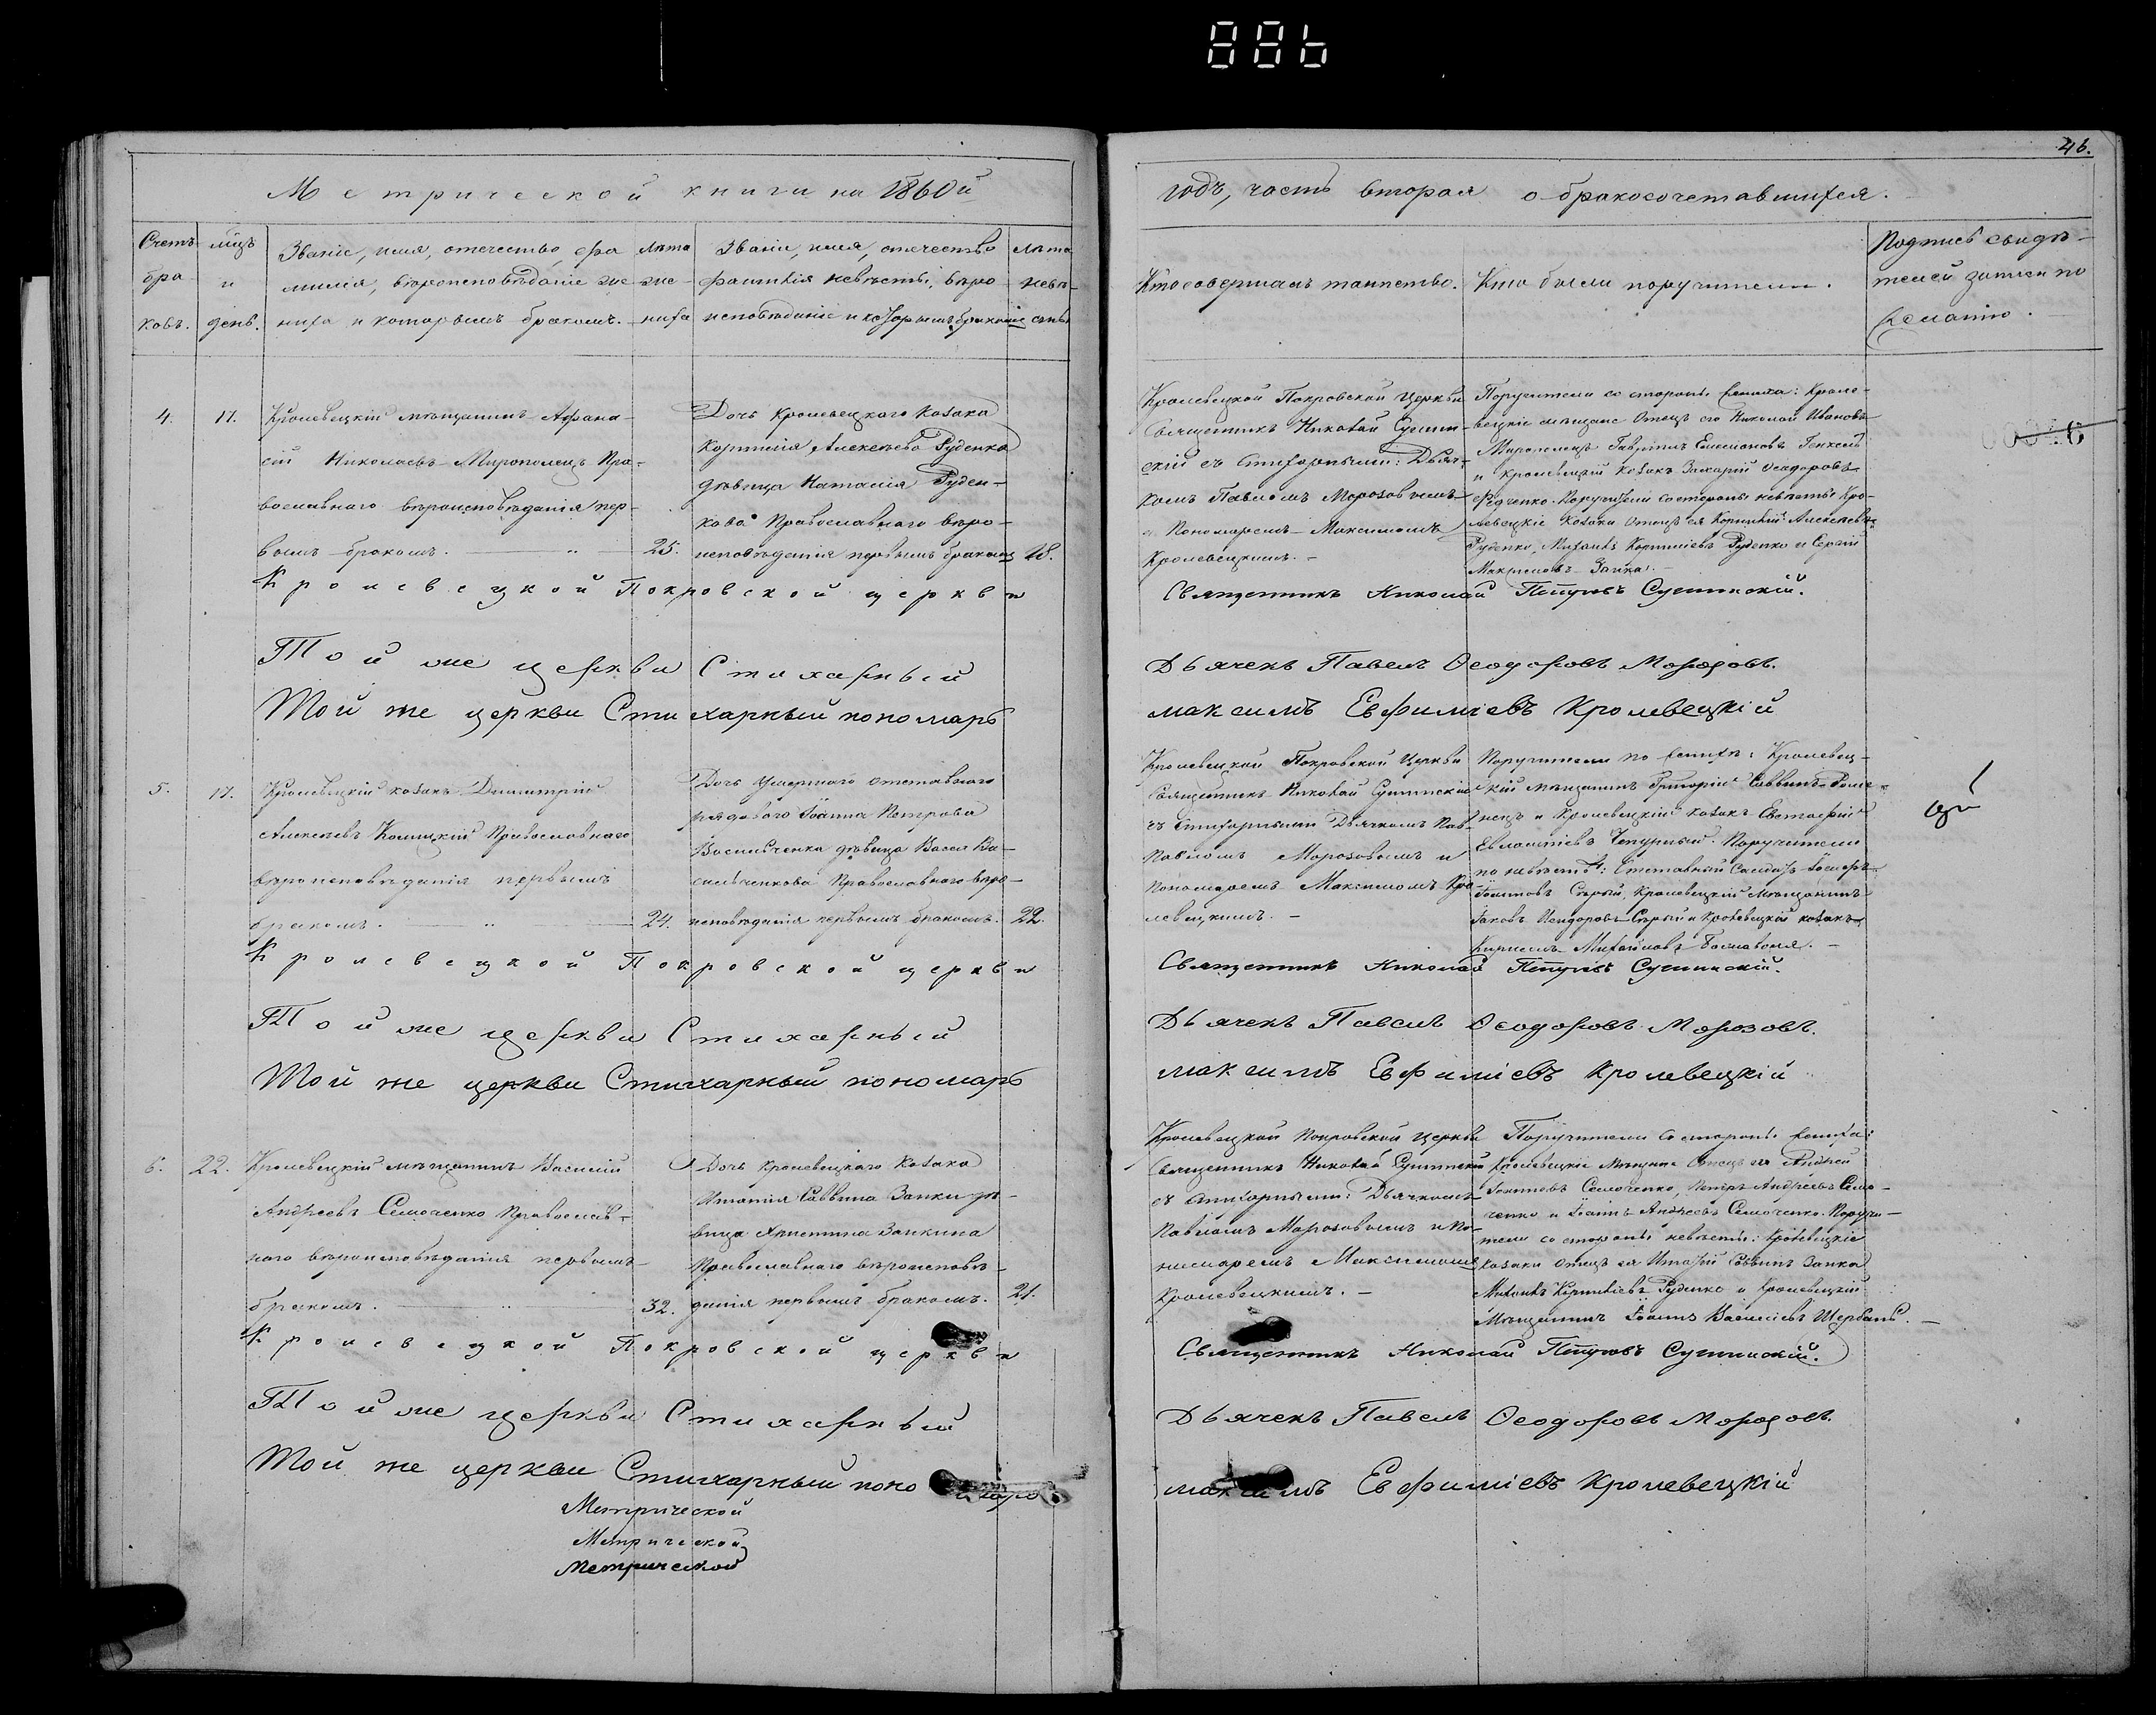 46.
Метрической книги на 1860й
годъ, часть вторая о бракосочетавшихся.
Счетъ браковъ.
мцъ и день.
Званіе, имя, отечество, фамилія, вѣроисповѣданіе жениха и которымъ бракомъ.
Лѣта жениха
Званіе, имя, отечество фамилія невѣсты, вѣроисповѣданіе и которымъ бракомъ
Лѣта невѣсты
Кто совершалъ таинство.
Кто были поручители.
Подпись свидѣтелей записи по желанію.
4.
17.
Кролевецкій мѣщанинъ Афана-
сій Николаевъ Мирополецъ Пра-
вославнаго вѣроисповѣданія пер-
вымъ бракомъ.
25.
Дочь Кролевецкого Козака
Корнилія Алексѣева Руденка
дѣвица Наталія Руден-
кова Православнаго вѣро-
исповѣданія первымъ бракомъ
18.
Кролевецкой Покровской Церкви
Священникъ Николай Сушин-
скій съ стихарными: Дьяч-
комъ Павломъ Морозовымъ
и Пономаремъ Максимомъ
Кролевецкимъ.
Поручители со стороны жениха: Кроле-
вецкіе мѣщане Отецъ его Николай Ивановъ
Мирополецъ Гавріилъ
и Кролевецкій козакъ Захарій Ѳеодоровъ
Федченко. Поручители со стороны невѣсты Кро-
левецкіе козаки Отецъ ея Корнилій Алексѣевъ
Руденко, Михаилъ Корниліевъ Руденко и Сергій
Заика.
Кролевецкой Покровской церкви
Священникъ Николай Петровъ Сушинскій.
Той же церкви Стихарный
Дьячекъ Павелъ Ѳеодоровъ Морозовъ.
Той же церкви Стихарный пономарь
максимъ Евфиміевъ Кролевецкій
5.
17.
Кролевецкій козакъ Димитрій
Алексѣевъ Православнаго
вѣроисповѣданія первымъ
бракомъ.
24.
Дочь умершаго отставнаго
рядоваго Іоанна Петрова
Васильченка дѣвица Васса Ва-
сильченкова Православнаго вѣро-
исповѣданія первымъ бракомъ.
22.
Кролевецкой Покровской Церкви
Священникъ Николай Сушинскій
съ стихарными Дьячкомъ Пав-
Павломъ Морозовымъ и
Пономаремъ Максимомъ Кро-
левецкимъ.
Поручители по женихѣ: Кролевец-
кій мѣщанинъ Григорій Саввинъ
и Кролевецкій козакъ Евстафій
Чепурный. Поручители
по невѣстѣ: Отставный Солдатъ
Іоанновъ Сѣрый, Кролевецкій Мѣщанинъ
Іаковъ Исидоровъ Сѣрый и Кролевецкій козакъ
Кириллъ Михайловъ
Кролевецкой Покровской церкви
Священникъ Николай Петровъ Сушинскій.
Той же церкви Стихарный
Дьячекъ Павелъ Ѳеодоровъ Морозовъ.
Той же церкви Стихарный пономарь
максимъ Евфиміевъ Кролевецкій
6.
22.
Кролевецкій мѣщанинъ Василій
Андреевъ Семоченко Православ-
наго вѣроисповѣданія первымъ
бракомъ.
32.
Дочь Кролевецкаго Козака
Ипатія Саввина Заики дѣ-
вица Христина Заикина
Православнаго вѣроисповѣ-
данія первымъ бракомъ.
21.
Кролевецкой Покровской Церкви
Священникъ Николай Сушинскій
съ Стихарными: Дьячкомъ
Павломъ Морозовымъ и По-
номаремъ Максимомъ
Кролевецкимъ.
Поручители со стороны жениха:
Кролевецкіе Мѣщане Отецъ его Андрей
Семоченко, Петръ Андреевъ Семо-
ченко и Іоаннъ Андреевъ Семоченко. Поручи-
тели со стороны невѣсты: Кролевецкіе
козаки Отецъ ея Ипатій Саввинъ Заика
Михаилъ Корниліевъ Руденко и Кролевецкій
Мѣщанинъ Іоаннъ Василіевъ Щербань.
Кролевецкой Покровской церкви
Священникъ Николай Петровъ Сушинскій.
Той же церкви Стихарный
Дьячекъ Павелъ Ѳеодоровъ Морозовъ.
Той же церкви Стихарный пономарь
максимъ Евфиміевъ Кролевецкій
Метрической
Метрической
Метрической